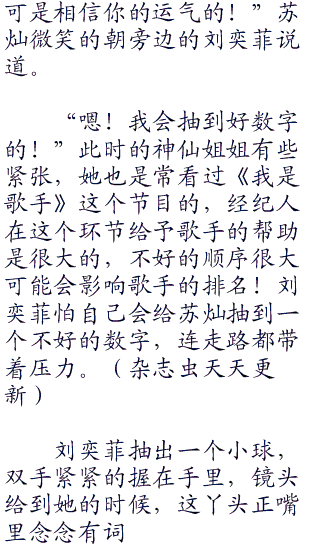 可是相信你的运气的！”苏
灿微笑的朝旁边的刘奕菲说
道。
“嗯！我会抽到好数字
的！”此时的神仙姐姐有些
紧张，她也是常看过《我是
歌手》这个节目的，经纪人
在这个环节给予歌手的帮助
是很大的，不好的顺序很大
可能会影响歌手的排名！刘
奕菲怕自己会给苏灿抽到一
个不好的数字，连走路都带
着压力。（杂志虫天天更
新）
刘奕菲抽出一个小球，
双手紧紧的握在手里，镜头
给到她的时候，这丫头正嘴
里念念有词